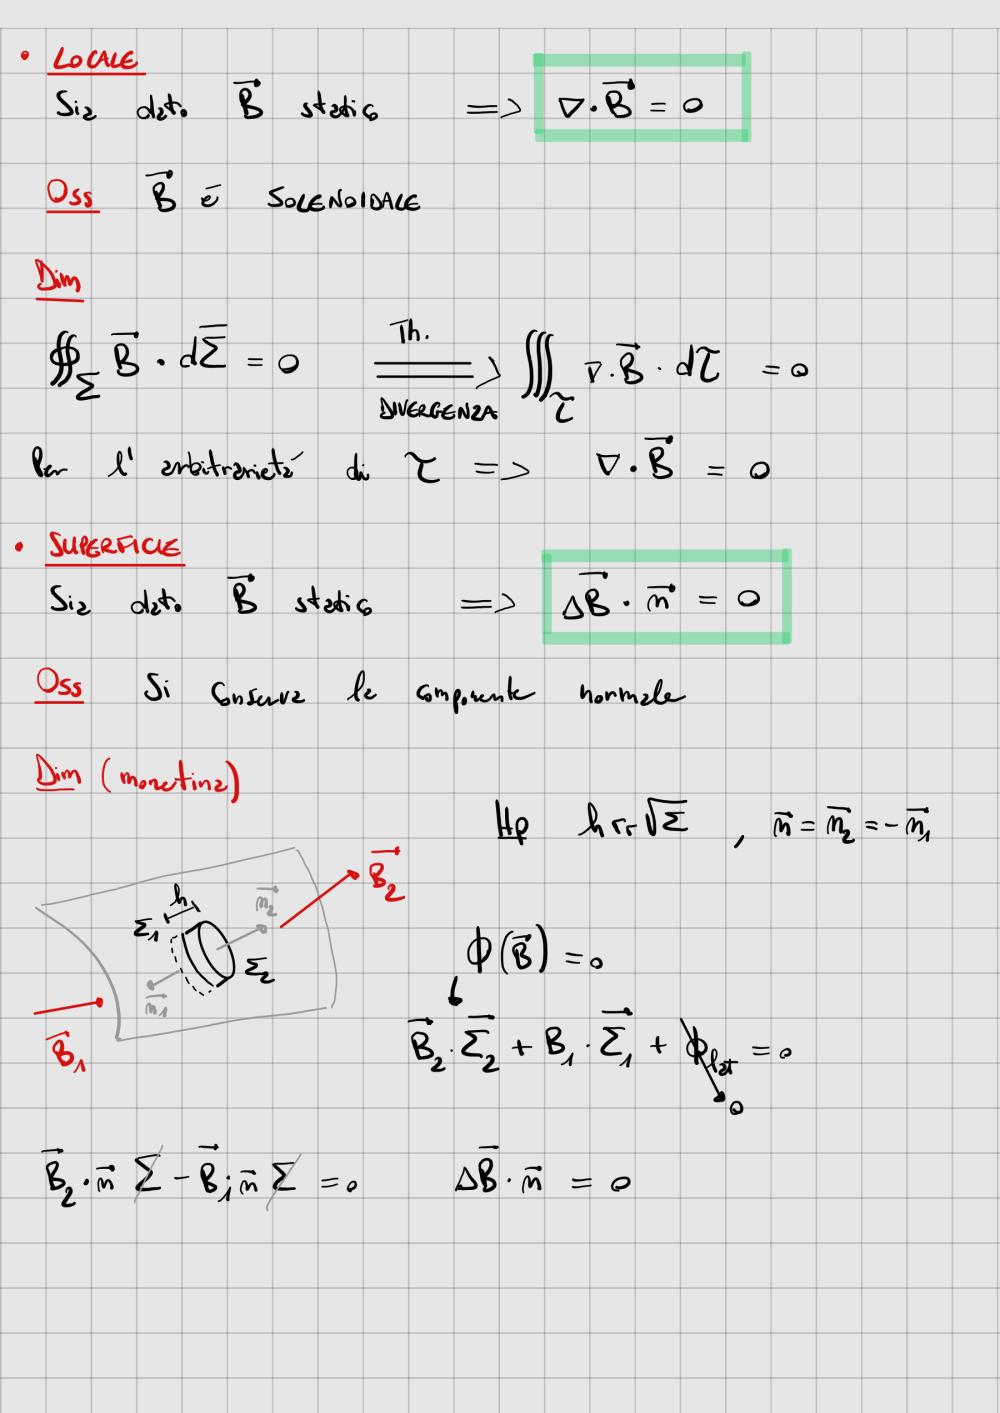 • LOCALE
Sia dato B⃗ statico => ∇·B⃗ = 0
Oss B⃗ é SOLENOIDALE
Dim
∯_Σ B⃗ · dΣ̅ = 0 Th. DIVERGENZA ==> ∭_τ ∇·B⃗ · dτ = 0
Per l' arbitrarietá di τ => ∇·B⃗ = 0
• SUPERFICIE
Sia dato B⃗ statico => ΔB⃗ · n⃗ = 0
Oss Si conserva la componente normale
Dim (monetina)
Hp h << √Σ , n⃗ = n⃗₂ = -n⃗₁
B⃗₂
h
n⃗₂
Σ₁
Σ₂
n⃗₁
B⃗₁
ϕ(B⃗) = 0
B⃗₂ · Σ⃗₂ + B₁ · Σ⃗₁ + ϕ_lat = 0
0
B⃗₂ · n⃗ Σ - B⃗₁ · n⃗ Σ = 0 ΔB⃗ · n⃗ = 0